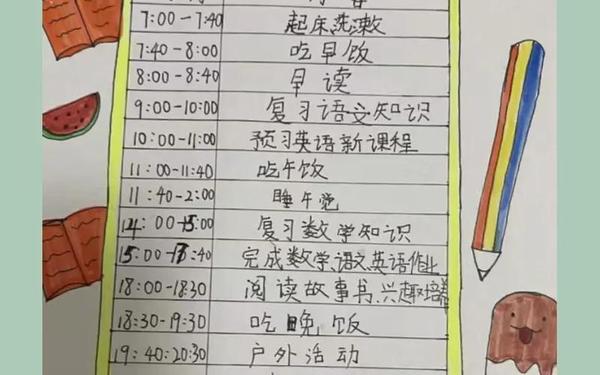 7:00-7:40 起床洗漱
7:40-8:00 吃早饭
8:00-8:40 早读
9:00-10:00 复习语文知识
10:00-11:00 预习英语新课程
11:00-11:40 吃午饭
11:40-2:00 睡午觉
14:00-15:00 复习数学知识
15:00-17:40 完成数学、语文、英语作业
18:00-18:30 阅读故事书、兴趣培养
18:30-19:30 吃晚饭
19:40:20:30 户外活动